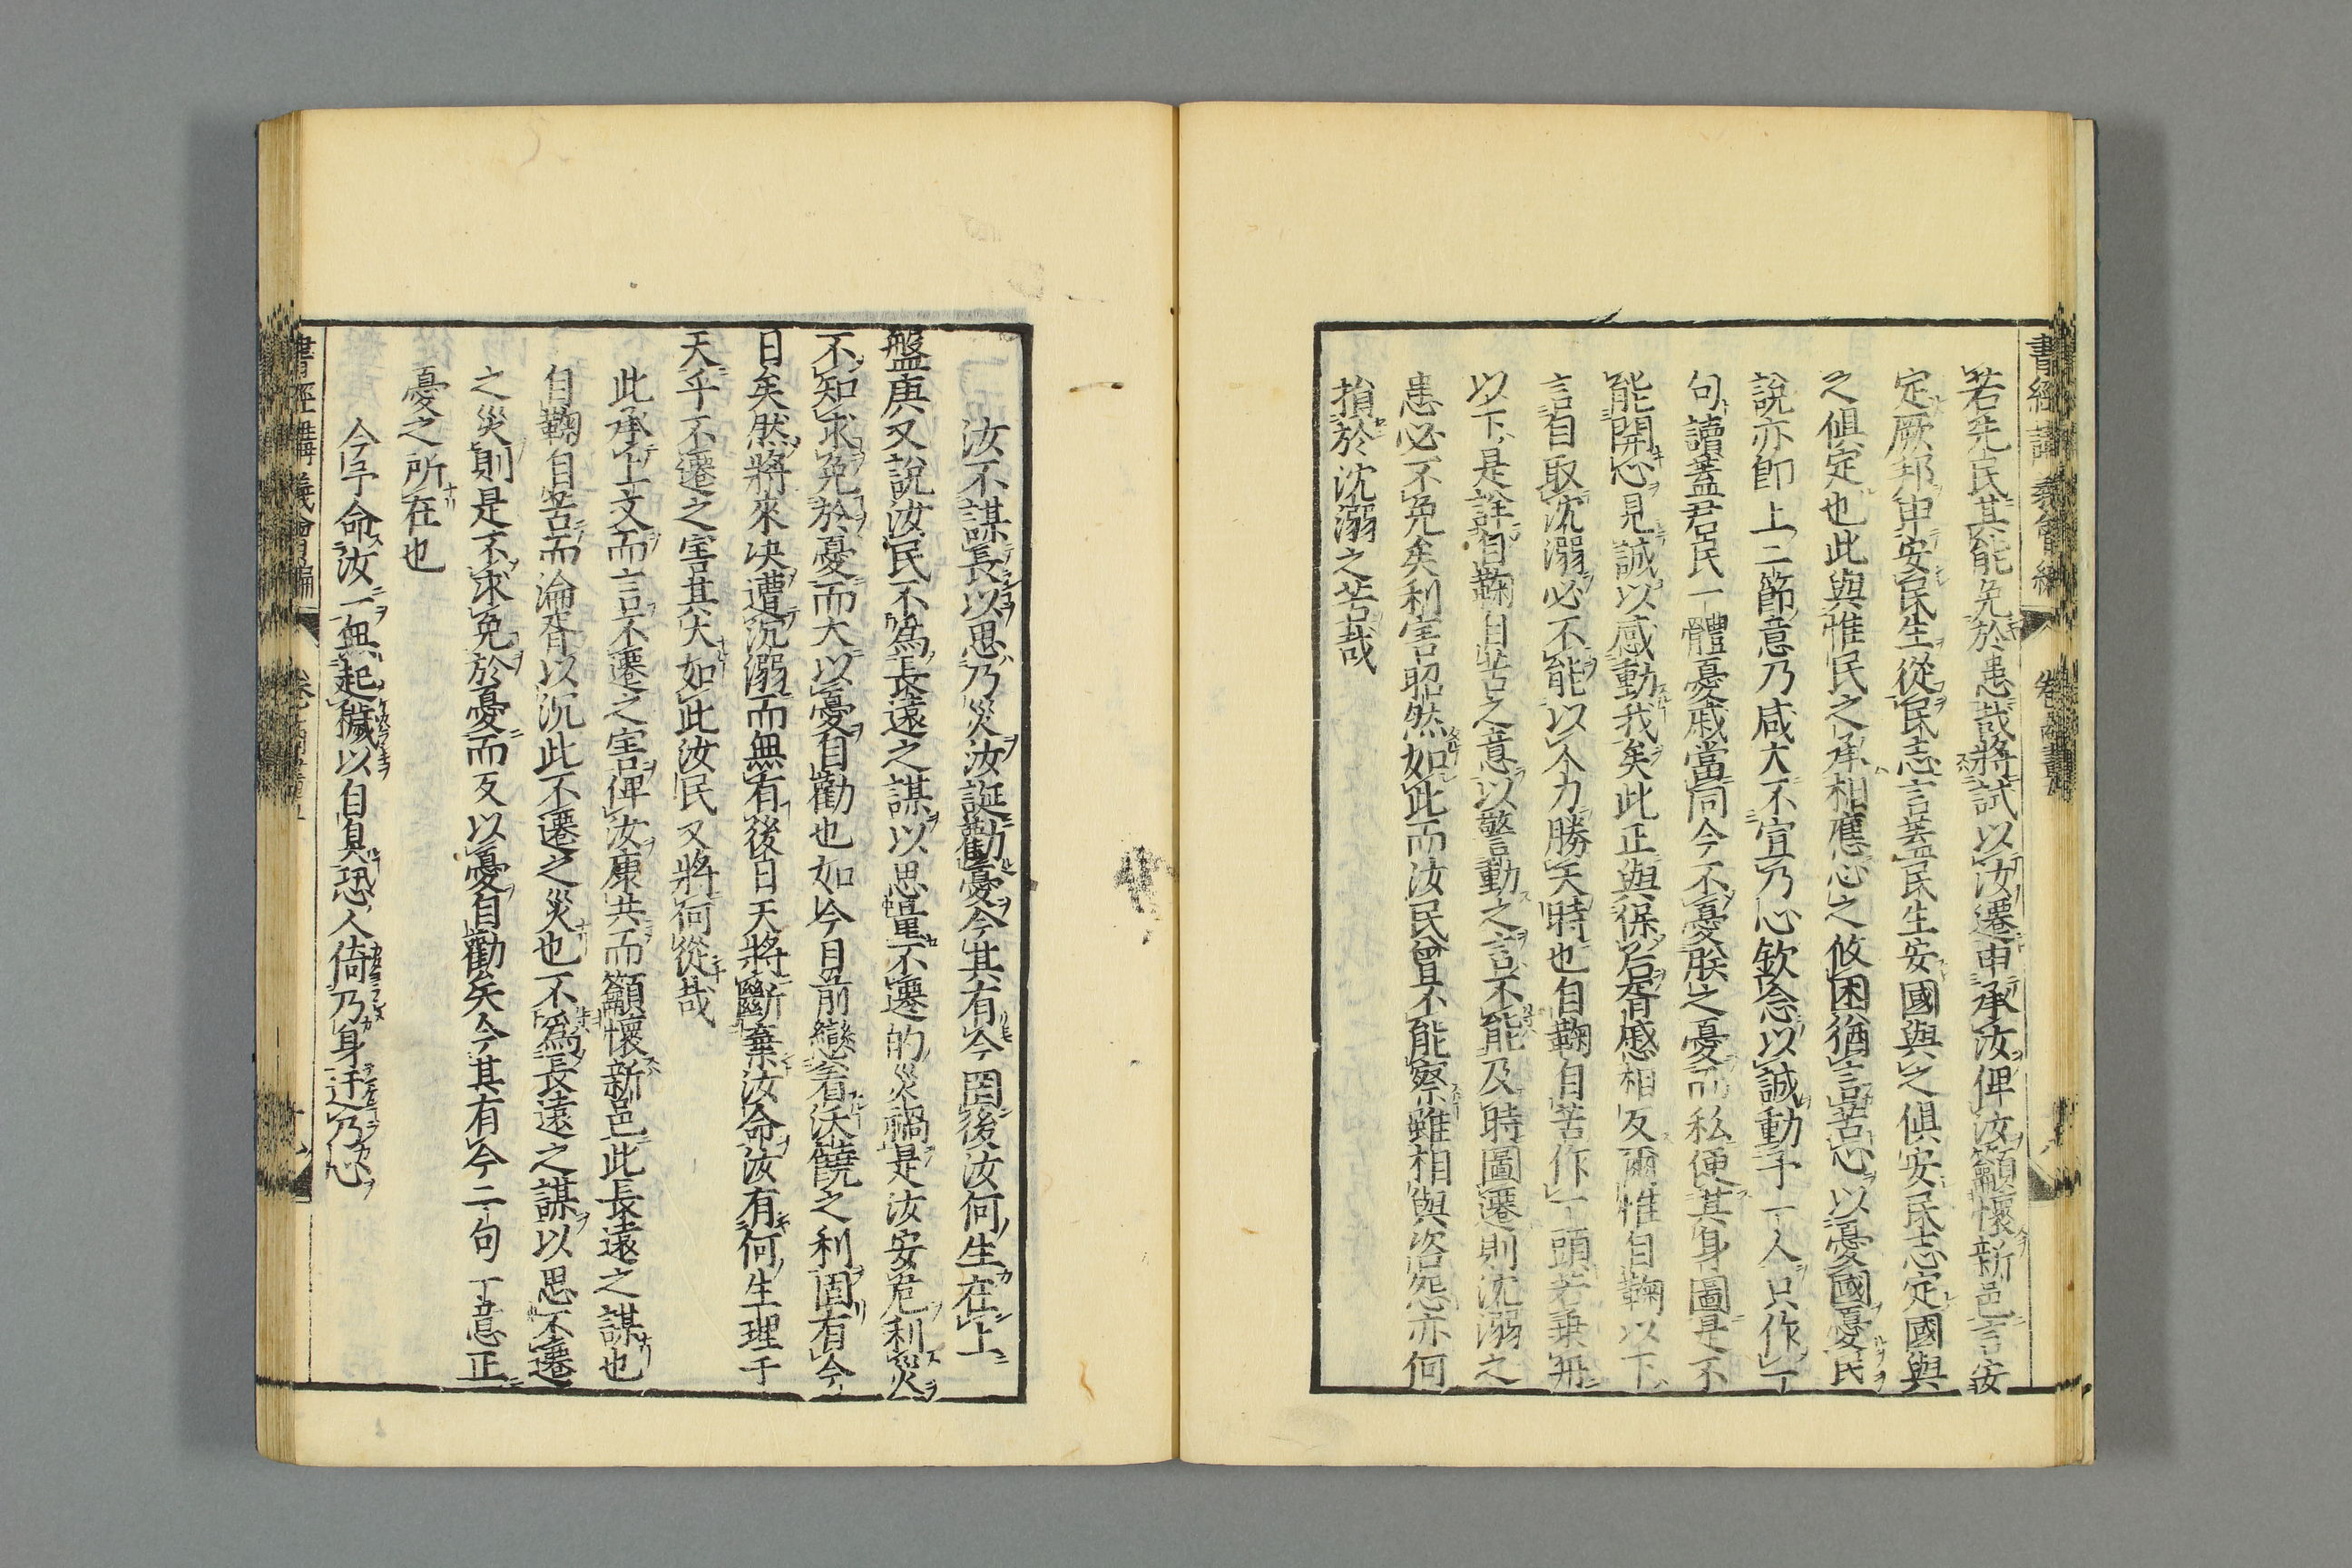 若先民其能免於患哉將試以汝遷申承汝俾汝籲懷新邑言安
定厥邦申安民生從民志言蓋民生安國與之俱安民志定國與
之俱定也此與惟民之承相應心之攸困猶言苦心以憂國憂民
說亦即上二節意乃咸大不宣乃心欽念以誠動予一人只作一
句讀蓋君民一體憂戚當同今不憂朕之憂而私便其身圖是不
能開心見誠以感動我矣此正與保后胥慼相反爾惟自鞠以下
言自取沈溺必不能以今力勝天時也自鞠自苦作一頭若乘舟
以下是詳自鞠自苦之意以警動之言不能及時圖遷則沈溺之
患必不免矣利害昭然如此而汝民曾不能察雖相與咨怨亦何
損於沈溺之苦哉
汝不謀長以思乃災汝誕勸憂今其有今罔後汝何生在上
盤庚又說汝民不爲長遠之謀以思量不遷的災禍是汝安危利災
不知求免於憂而大以憂自勸也如今目前戀着沃饒之利固有今
日矣然將來决遭沉溺而無有後日天將斷棄汝命汝有何生理于
天乎不遷之害其大如此汝民又將何從哉
此承上文而言不遷之害俾汝康共而籲懷新邑此長遠之謀也
自鞠自苦而淪胥以沉此不遷之災也不爲長遠之謀以思不遷
之災則是不求免於憂而反以憂自勸矣今其有今二句一意正
憂之所在也
今予命汝一無起穢以自臭恐人倚乃身迂乃心